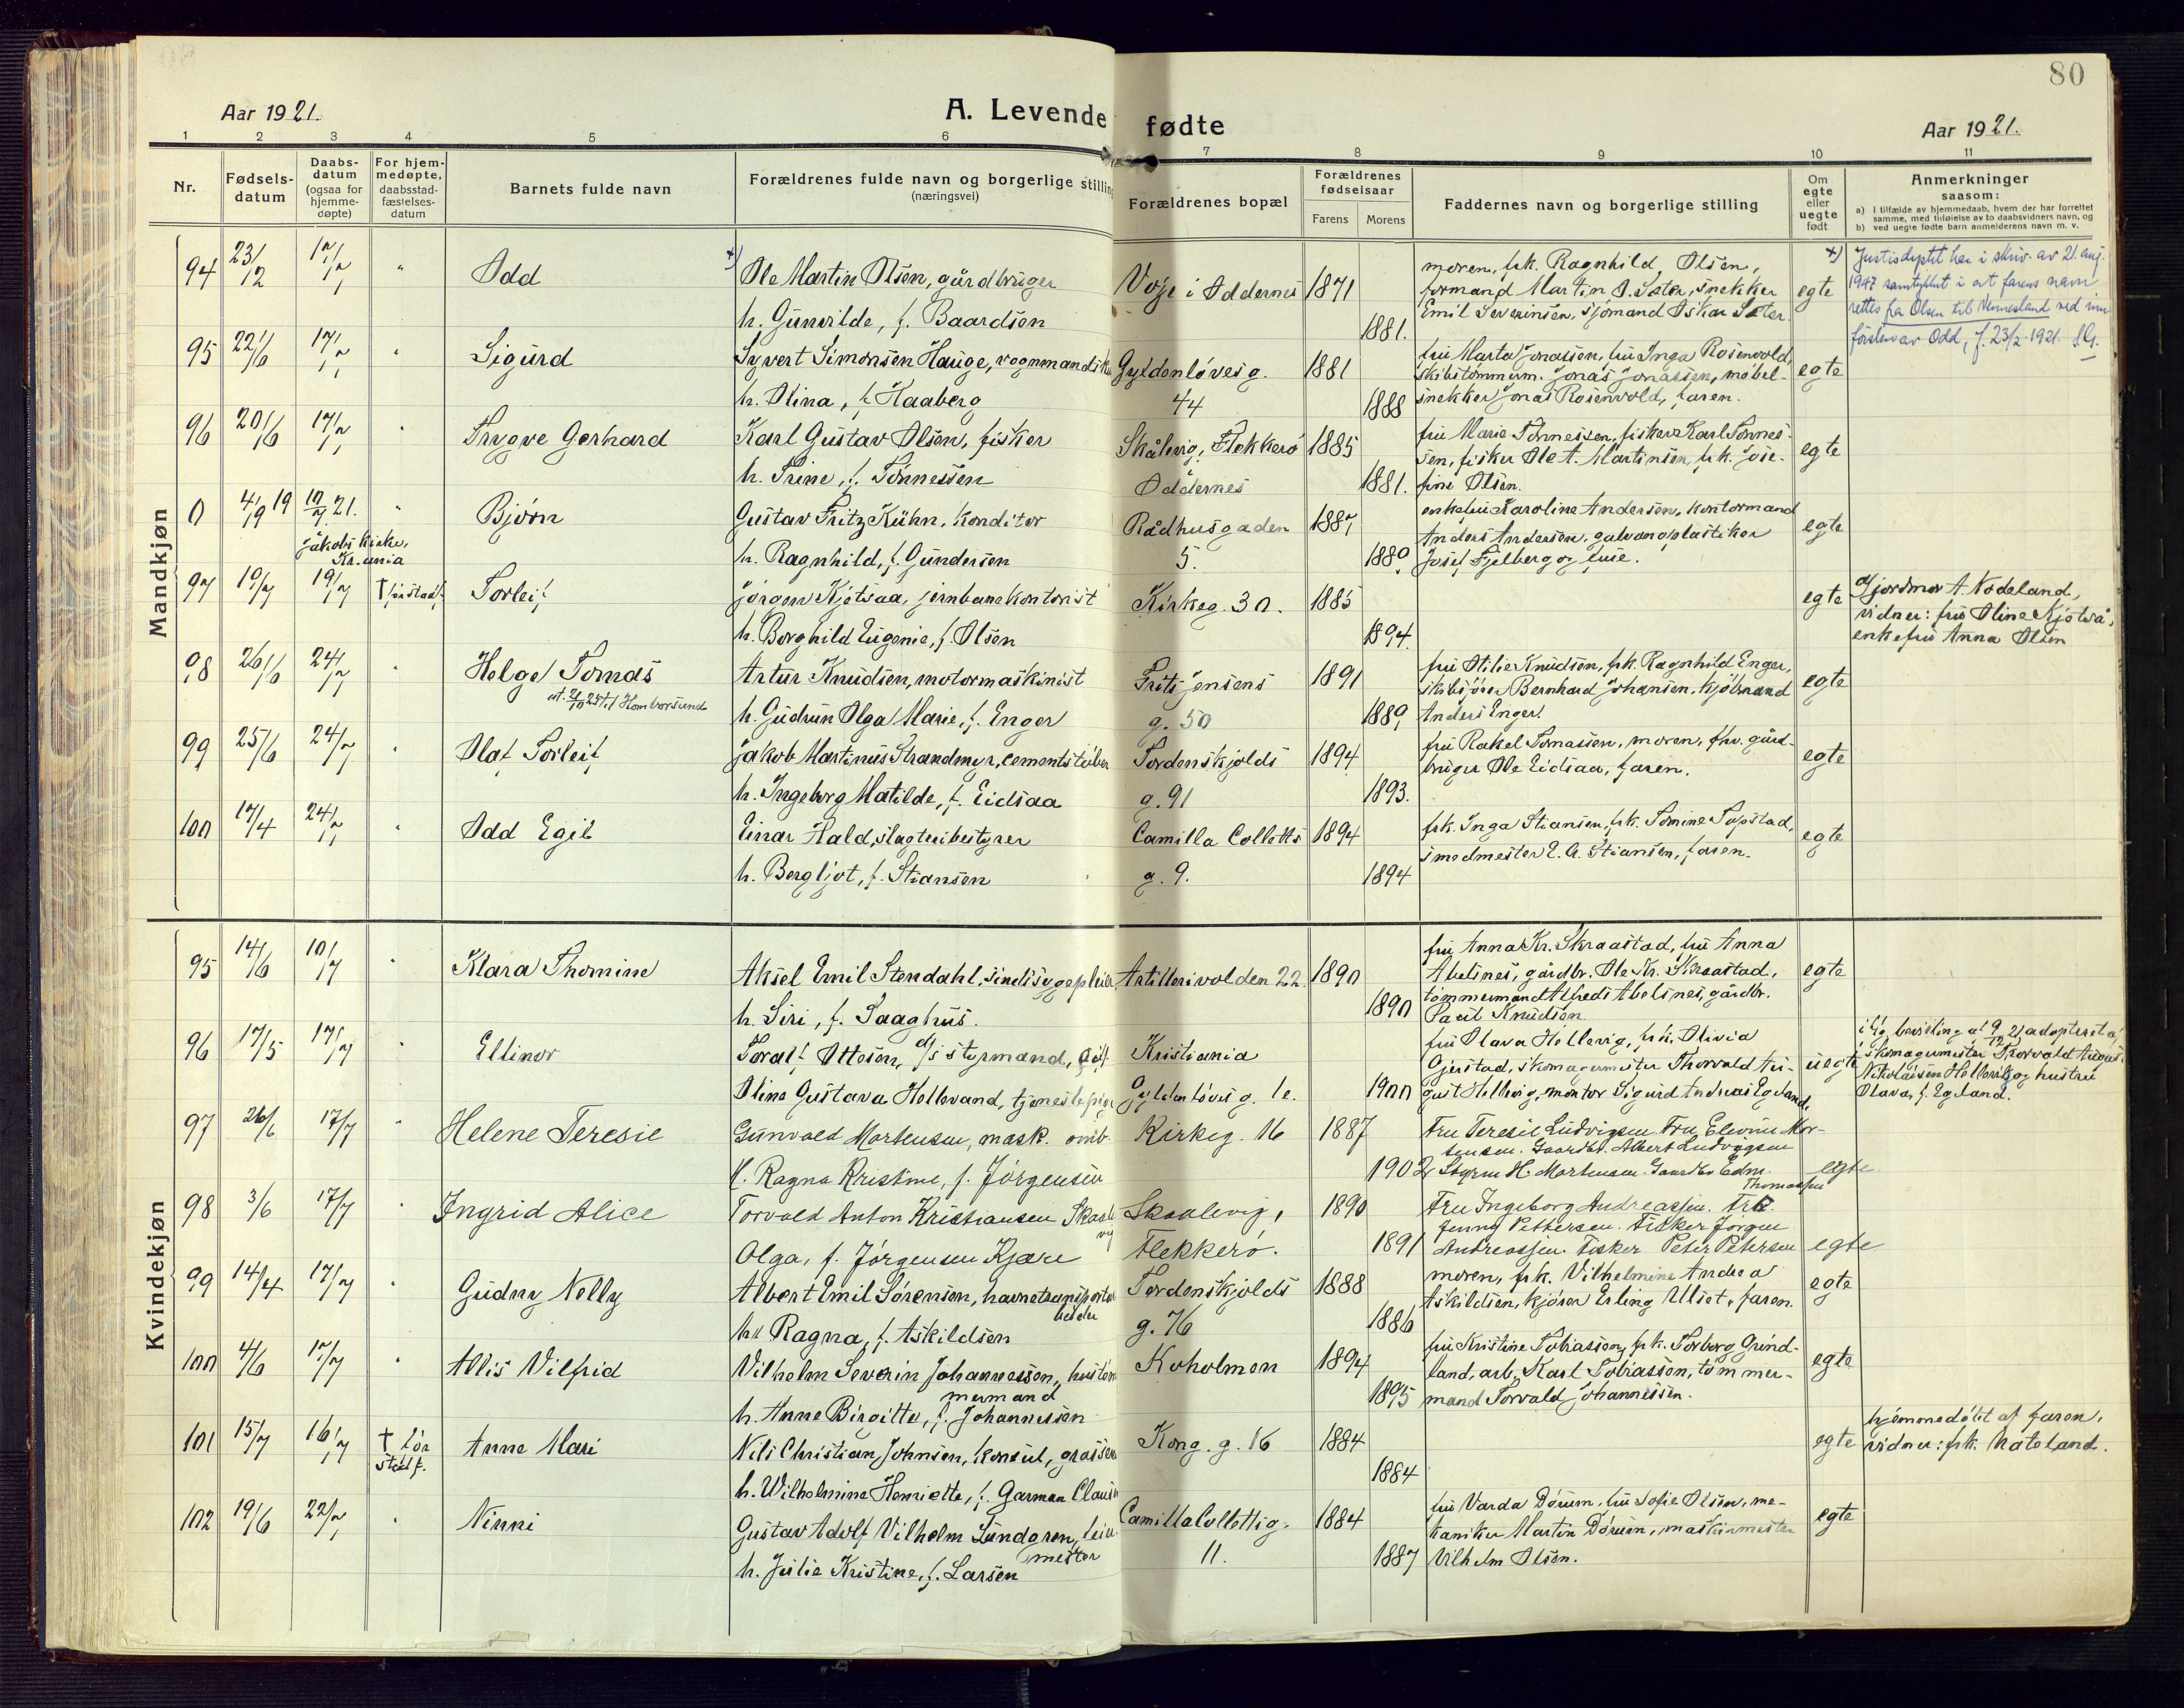 80
Aar 1921.
A. Levende fødte
Aar 1921.
1 2 3 4 5 6 7 8 9 10 11
Nr.
Fødsels-
datum
Daabs-
datum
(ogsaa for
hjemme-
døpte)
For hjem-
medøpte,
daabsstad-
fæstelses-
datum
Barnets fulde navn
Forældrenes fulde navn og borgerlige stilling
(næringsvei)
Forældrenes bopæl
Forældrenes
fødselsaar
Farens Morens
Faddernes navn og borgerlige stilling
Om
egte
eller
uegte
født
Anmerkninger
saasom:
a) i tilfælde av hjemmedaab, hvem der har forrettet
samme, med tilføielse av to daabsvidners navn, og
b) ved uegte fødte barn anmelderens navn m. v.
Mandkjøn
94 23/12 17/7 " Odd
Ole Martin Olsen, gårdbruger
h. Gunvilde, f. Baardsen
Voje i Oddernes 1871
1881.
moren, frk. Ragnhild Olsen,
formand Martin O. Sæter, snekker
Emil Severinsen, sjømand Oskar Sæter
egte
+) Justisdeptet har i skriv. av 21. aug.
1947 samtykket i at farens navn
rettes fra Olsen til Vennesland ved inn
førslen av Odd, f. 23/2-1921. S.G.
95 22/6 17/7 " Sigurd
Syvert Simonsen Hauge, vognmand
h. Olina, f. Haaberg
Gyldenløvesg.
44
1881
1888
fru Marta Jonassen, fru Inga Rosenvold,
skibstømmerm. Jonas Jonassen, møbel-
snekker Jonas Rosenvold, faren.
egte
96 20/6 17/7 " Trygve Gerhard
Karl Gustav Olsen, fisker
h. Trine, f. Tønnessen
Skålevig, Flekkerø
Oddernes
1885
1881.
fru Marie Tønnessen, fisker Karl Tønnes-
sen, fisker Ole A. Martinsen, frk. Jose-
fine Olsen.
egte
0 4/9 19 10/7 21. " Bjørn
Jakobs kirke,
Kr.ania
Gustav Fritz Kühn, konditor
h. Ragnhild, f. Gundersen
Rådhusgaden
5.
1887
1889
enkefru Karoline Andersen, kontormand
Anders Andersen, galvanoplastiker
Josef Fjelberg og frue.
egte
97 19/7 19/7 † før stadf. Torleif
Jørgen Kjøtsaa, jernbanekontorist
h. Borghild Eugenie, f. Olsen
Kirkeg. 30. 1885
1894.
egte
Gjordmor A. Nodeland,
vidner: fru Oline Kjøtså,
enkefru Anna Olsen
98 26/6 24/7 " Helge Tomas
at. 21/10 25 til Homborsund
Artur Knudsen, motormaskinist
h. Gudrun Olga Marie, f. Enger
Fritz Jensens
g. 50
1891
1889
fru Otilie Knudsen, frk. Ragnhild Enger,
skibsfører Bernhard Johansen, kjøbmand
Anders Enger.
egte
99 25/6 24/7 " Olaf Torleif
Jakob Martinus Strandmyr, cementstøber
h. Ingeborg Matilde, f. Eidsaa
Tordenskjolds
g. 91
1894
1893.
fru Rakel Tomassen, moren, fhv. gård-
bruger Ole Eidsaa, faren.
egte
100 17/4 24/7 " Odd Egil
Einar Hald, slagteribestyrer
h. Bergljot, f. Stiansen
Camilla Colletts
g. 9.
1894
1894
frk. Inga Stiansen, frk. Tomine Topstad,
smedmester E. A. Stiansen, faren.
egte
Kvindekjøn
95 14/6 10/7 " Klara Thomine
Aksel Emil Stendahl, sindssygepleier,
h. Siri, f. Saaghus.
Artillerivolden 22. 1890
1890
fru Anna Kr. Skraastad, fru Anna
Abelsnes, gårdbr. Ole Kr. Skraastad,
tømmermand Alfred Abelsnes, gårdbr.
Paul Knudsen.
egte
96 17/5 17/7 Ellinor
Toralf Ottesen, styrmand,
Oline Gustava Hellevand, tjenestepige
Kristiania
Gyldenløvesg. 1e.
1900
fru Olava Hellevig, frk. Olivia
Gjerstad, skomagermester Thorvald Au-
gust Hellevig, montør Sigurd Andreas Egeland,
uegte
iflg. bevilling af 9/12 21 adopteret af
skomagermester Thorvald August
Nikolaisen Hellevig og hustru
Olava, f. Egeland.
97 26/6 17/7 Helene Teresie
Gunvald Mortensen, mask. omb.
H. Ragna Kristine, f. Jörgensen
Kirkeg. 16 1887
1902
Fru Teresie Ludvigsen. Fru Elevine Mor-
tensen. Gaardbr. Albert Ludvigsen
Styrm H. Mortensen. Gaardbr Edm.
Thomassen
egte
98 3/6 17/7 " Ingrid Alice
Torvald Anton Kristiansen Skaale
vig
Olga, f. Jörgensen Kjære
Skaalevig,
Flekkerø.
1890
1891
Fru Ingeborg Andreassen. Frk.
Jenny Pettersen. Fisker Jörgen
Andreassen. Fisker Peter Petersen
egte
99 14/4 17/7 " Gudny Nelly
Albert Emil Sørensen, havnetransportar
beider
h. Ragna, f. Askildsen
Tordenskjolds
g. 76
1888
1886
moren, frk. Vilhelmine Andrea
Askildsen, kjører Erling Ulset, faren.
egte
100 4/6 17/7 " Allis Vilfrid
Vilhelm Severin Johannessen, hustøm
mermand
h. Anne Birgitte, f. Johannessen
Kuholmen 1894
1895
fru Kristine Tobiassen, frk. Torborg Grund-
land, arb. Karl Tobiassen, tømmer-
mand Torvald Johannessen.
egte
101 15/7 16/7 † før
stadf. Anne Mari
Nils Christian Johnsen, konsul, grosserer
h. Wilhelmine Henriette, f. Garman Clausen
Kong. g. 16 1884
1884
egte
hjemmedøbt af faren,
vidner: frk. Nateland.
102 19/6 22/7 " Ninni
Gustav Adolf Vilhelm Lundgren,
mester
h. Julie Kristine, f. Larsen
Camilla Collettsg.
11.
1884
1887
fru Varda Dørum, fru Sofie Olsen, me-
kaniker Martin Dørum, maskinmester
Vilhelm Olsen.
egte